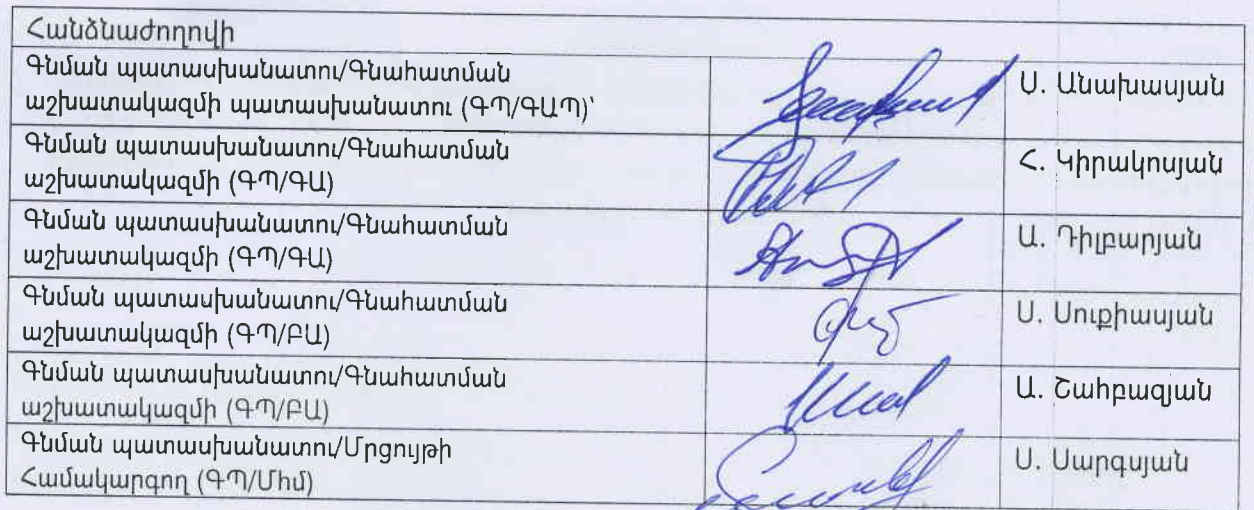 Հանձնաժողովի
Գնման պատասխանատու/Գնահատման
աշխատակազմի պատասխանատու (ԳՊ/ԳԱՊ)՝
Ս. Անախասյան
Գնման պատասխանատու/Գնահատման
աշխատակազմի (ԳՊ/ԳԱ)
Հ. Կիրակոսյան
Գնման պատասխանատու/Գնահատման
աշխատակազմի (ԳՊ/ԳԱ)
Ա. Դիլբարյան
Գնման պատասխանատու/Գնահատման
աշխատակազմի (ԳՊ/ԲԱ)
Ս. Սուքիասյան
Գնման պատասխանատու/Գնահատման
աշխատակազմի (ԳՊ/ԲԱ)
Ա. Շահբազյան
Գնման պատասխանատու/Մրցույթի
Համակարգող (ԳՊ/Միմ)
Ս. Սարգսյան